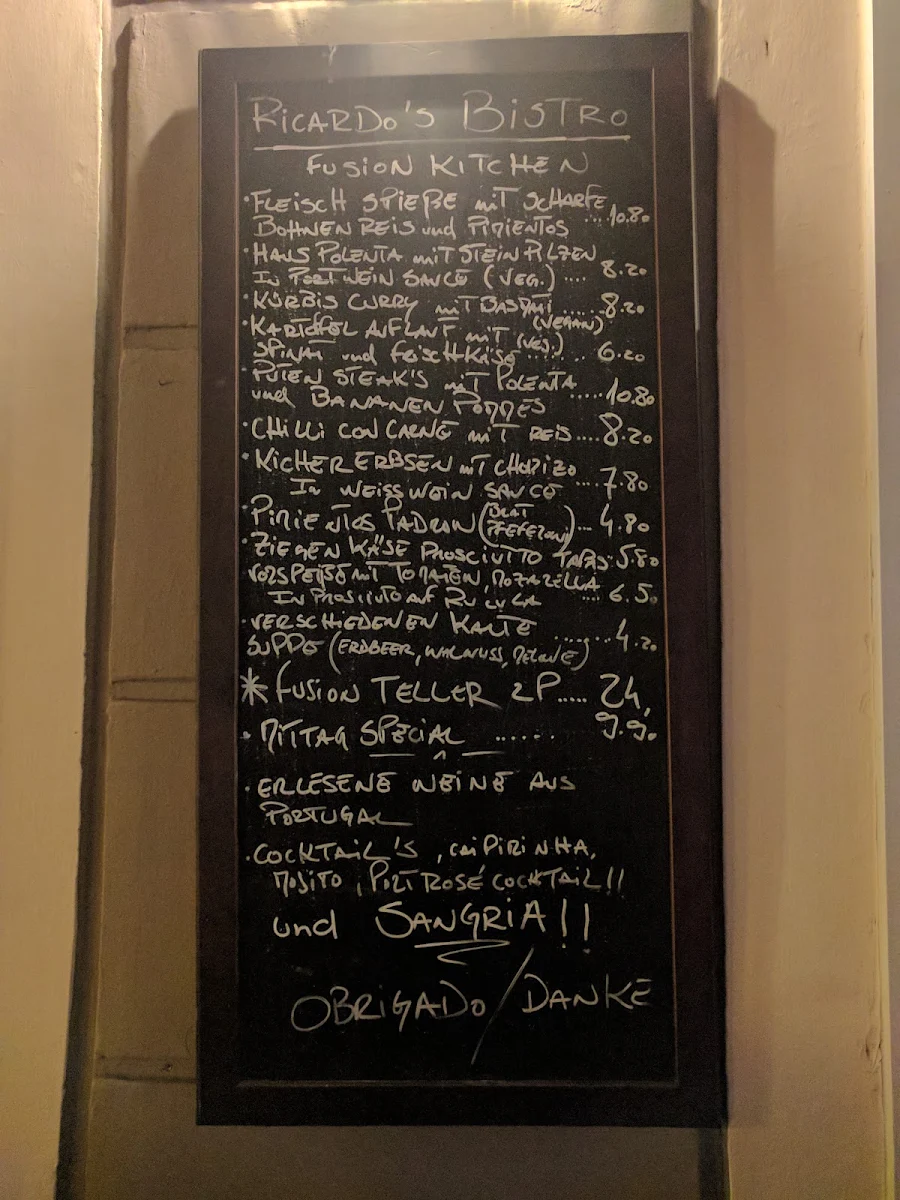 RiCARDo's BiSTRo
FUSioN KiTCHEN
·FLEiSCH SPiEßE miT SCHARFE
BOHNEN REiS und PiMiENTOS ....10.80
·HAUS POLENTA miT STEiN PiLZEN
IN PORTWEiN SAUCE (VEG.) .... 8.20
·KÜRBiS CURRY miT BASMTi ......8.20
(VEGAN)
·KARTOFEL AUFLAUF miT (VEG.)
SPiNAT und FRiSCHKÄSE ...... 6.20
·PUTEN STEAK'S miT POLENTA
und BANANEN POMMES .....10.80
·CHiLLi CON CARNE miT REiS....8.20
·KiCHER ERBSEN miT CHORiZO
IN WEiSSWEiN SAUCE ....7.80
·PiMiENTOS PADRON (BRAT PFEFERONi)... 4.80
·ZiEGEN KÄSE PROSCiUTTO TAPAS.5.80
VORSPEiSE miT TOMATEN, MOZARELLA
IN PROSCiUTO AUF RUCULA .... 6.50
·VERSCHiEDENEN KALTE
SUPPE (ERDBEER, WALNUSS, MELONE) .......4.20
*FUSiON TELLER 2P..... 24,
· MiTTAG SPECiAL ...... 9.90
·ERLESENE WEiNE AUS
PORTUGAL
·COCKTAiL'S, CAiPiRiNHA,
MOJiTO, PORT ROSÉ COCKTAiL!!
und SANGRiA!!
OBRiGADO/DANKE